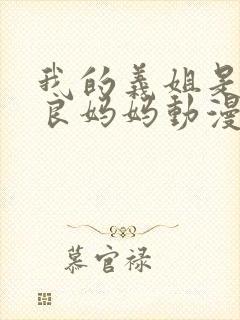 我的義姐是
良媽媽動漫
慕官禄